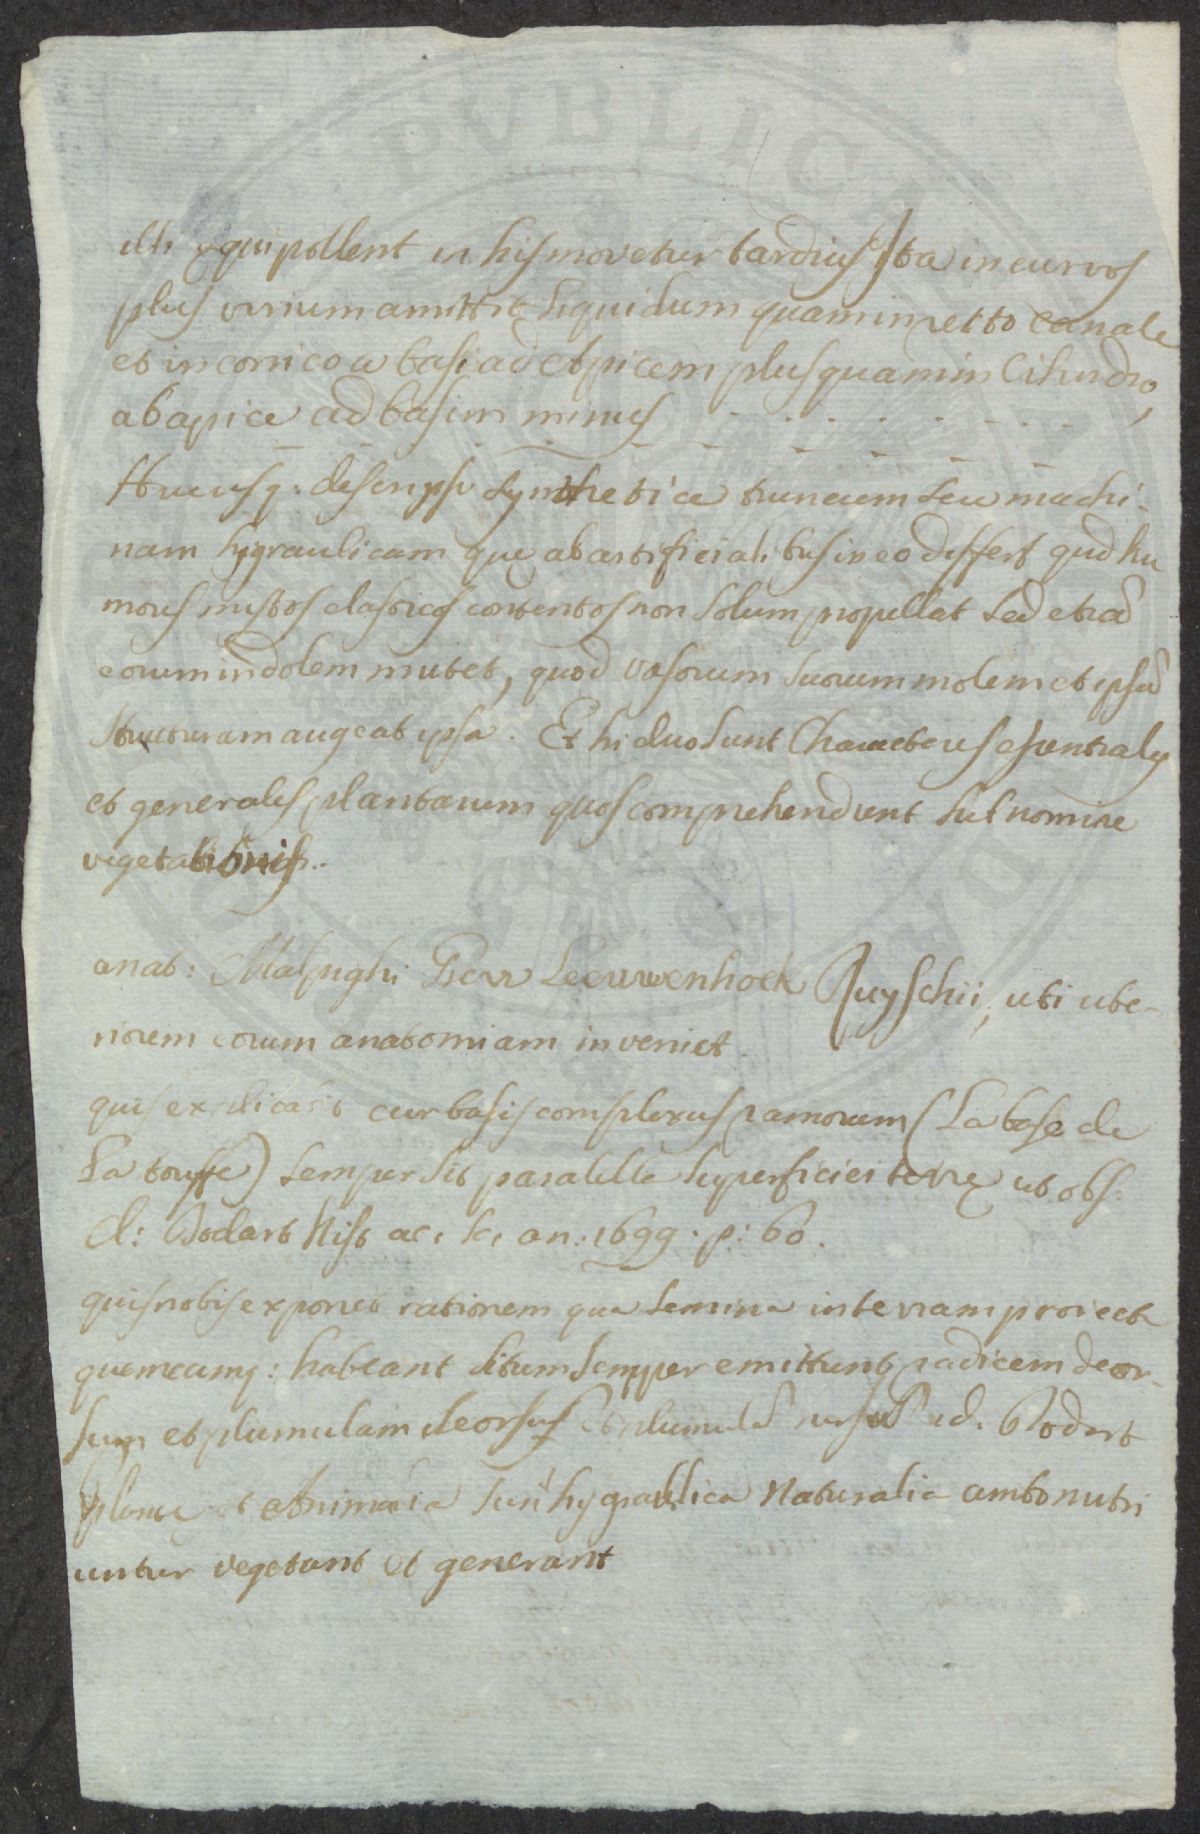 PVBLICA
illi ęquipollent in his movetur tardius Ita in curvos
plus virium amittit liquidum quam in recto canale
et in conico a basi ad apicem plus quam in Cilindro,
ab apice ad basim minus
Hucusq: descripsi synthetice truncum seu machi-
nam hygraulicam quę ab artificialibus in eo differt quod hu
mores mistos elasticos contentos non solum propellat sed etiā
eorum indolem mutet, quod vasorum suorum molem et ipsā
structuram augeat ipsa. Et hi duo sunt Characteres essentiales
et generales plantarum quos comprehendunt sub nomine
vegetationis.
anat: Malpighi Grew Leeuwenhoek Ruyschii, ubi ube-
riorem eorum anatomiam inveniet.
quis explicabit cur basis complexus ramorum (La base de
La touffe) semper sit paralella superficiei terrę ut obs.
d: Dodart Hist ac. sc. an. 1699. p: 60.
quis nobis exponet rationem qua semina in terram proiecta
quemcumq: habeant situm semper emittunt radicem deor-
sum et plumulam deorsus et plumulā rursus id. Dodart
plantę et Animalia sunt hygraulica Naturalia ambo nutri
untur vegetant et generant